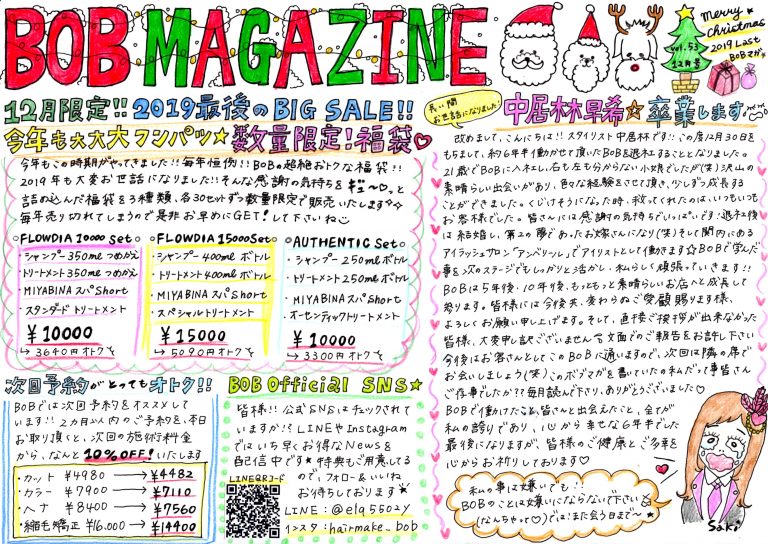 BOB MAGAZINE
vol.53
12月号
Merry
Christmas
2019 Last
BOBマガ
12月限定!! 2019最後のBIG SALE!!
今年も大大大フンパツ☆数量限定!福袋♡
今年もこの時期がやってきました!!毎年恒例!!BOBの超絶おトクな福袋!!
2019年も大変お世話になりました!!そんな感謝の気持ちをギュ〜♡っと
詰め込んだ福袋を3種類、各30セットずつ数量限定で販売いたします☆
毎年売り切れてしまうので是非お早めにGET!して下さいね
FLOWDIA 10000 Set
・シャンプー 350ml つめかえ
・トリートメント 350ml つめかえ
・MIYABINAスパ Short
・スタンダードトリートメント
¥10000
→3640円オトク
FLOWDIA 15000 Set
・シャンプー 400ml ボトル
・トリートメント 400ml ボトル
・MIYABINAスパ Short
・スペシャルトリートメント
¥15000
→5090円オトク
AUTHENTIC Set
・シャンプー 250ml ボトル
・トリートメント 250ml ボトル
・MIYABINAスパ Short
・オーセンティックトリートメント
¥10000
→3300円オトク
次回予約がとってもオトク!!
BOBでは次回予約をオススメして
います!!2カ月以内のご予約を、本日
お取り頂くと、次回の施術料金
から、なんと10%OFF!いたします
・カット ¥4980 → ¥4482
・カラー ¥7900 → ¥7110
・ヘナ ¥8400 → ¥7560
・縮毛矯正 ¥16.000 → ¥14400
BOB Official SNS★
皆様!!公式SNSはチェックされて
いますか!?LINEやInstagram
ではいち早くお得なNewsを
配信中です★特典もご用意してる
ので、フォロー&いいね
お待ちしております
LINEQRコード
LINE:@elq5502y
インスタ:hairmake_bob
長い間
お世話になりました
中居林早希☆卒業します
改めまして、こんにちは!!スタイリスト中居林です!!この度12月30日を
もちまして、約6年半働かせて頂いたBOBを退社することとなりました。
21歳でBOBに入社し、右も左も分からない小娘でしたが(笑)沢山の
素晴らしい出会いがあり、色々な経験をさせて頂き、少しずつ成長する
ことができました。くじけそうになった時、救ってくれたのは、いつもいつも
お客様でした。皆さんには感謝の気持ちでいっぱいです!退社後
は結婚し、第2の夢であったお嫁さんになり(笑)そして関内にある
アイラッシュサロン「アンベリール」でアイリストとして働きます☆BOBで学んだ
事を次のステージでもしっかりと活かし、私らしく頑張っていきます!!
BOBは5年後、10年後、もっともっと素晴らしいお店へと成長して
参ります。皆様には今後共、変わらぬご愛顧賜ります様、
よろしくお願い申し上げます。そして、直接ご挨拶が出来なかった
皆様、大変申し訳ございません。文面でのご報告をお許し下さい
今後はお客さんとしてこのBOBに通いますので、次回は隣の席で
お会いしましょう(笑)このボブマガを書いていたのは私だって事皆さん
ご存じでしたか??毎月読んで下さり、ありがとうございました♡
BOBで働けたこと、皆さんと出会えたこと、全てが
私の誇りであり、心から幸せな6年半でした
最後になりますが、皆様のご健康とご多幸を
心からお祈りしております♡
私の事は嫌いでも!!
BOBのことは嫌いにならないで下さい
(なんちゃって♡)では!また会う日まで〜
Saki